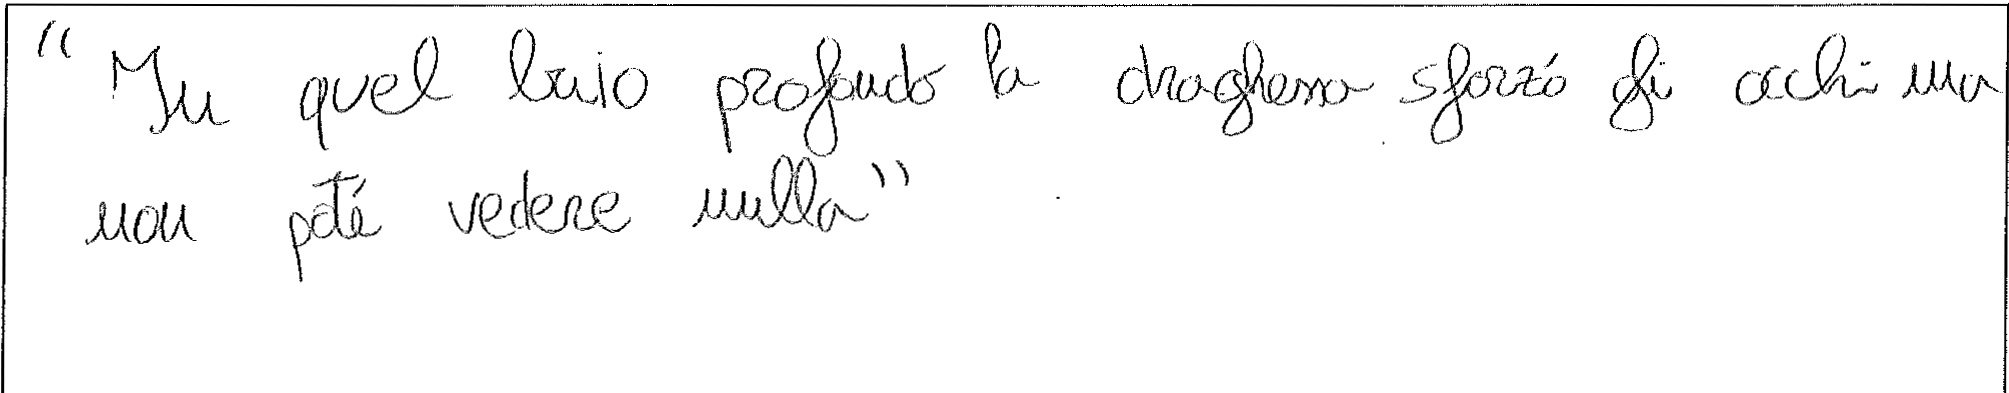 "In quel buio profondo la draghessa sforzó gli occhi ma
non poté vedere nulla"